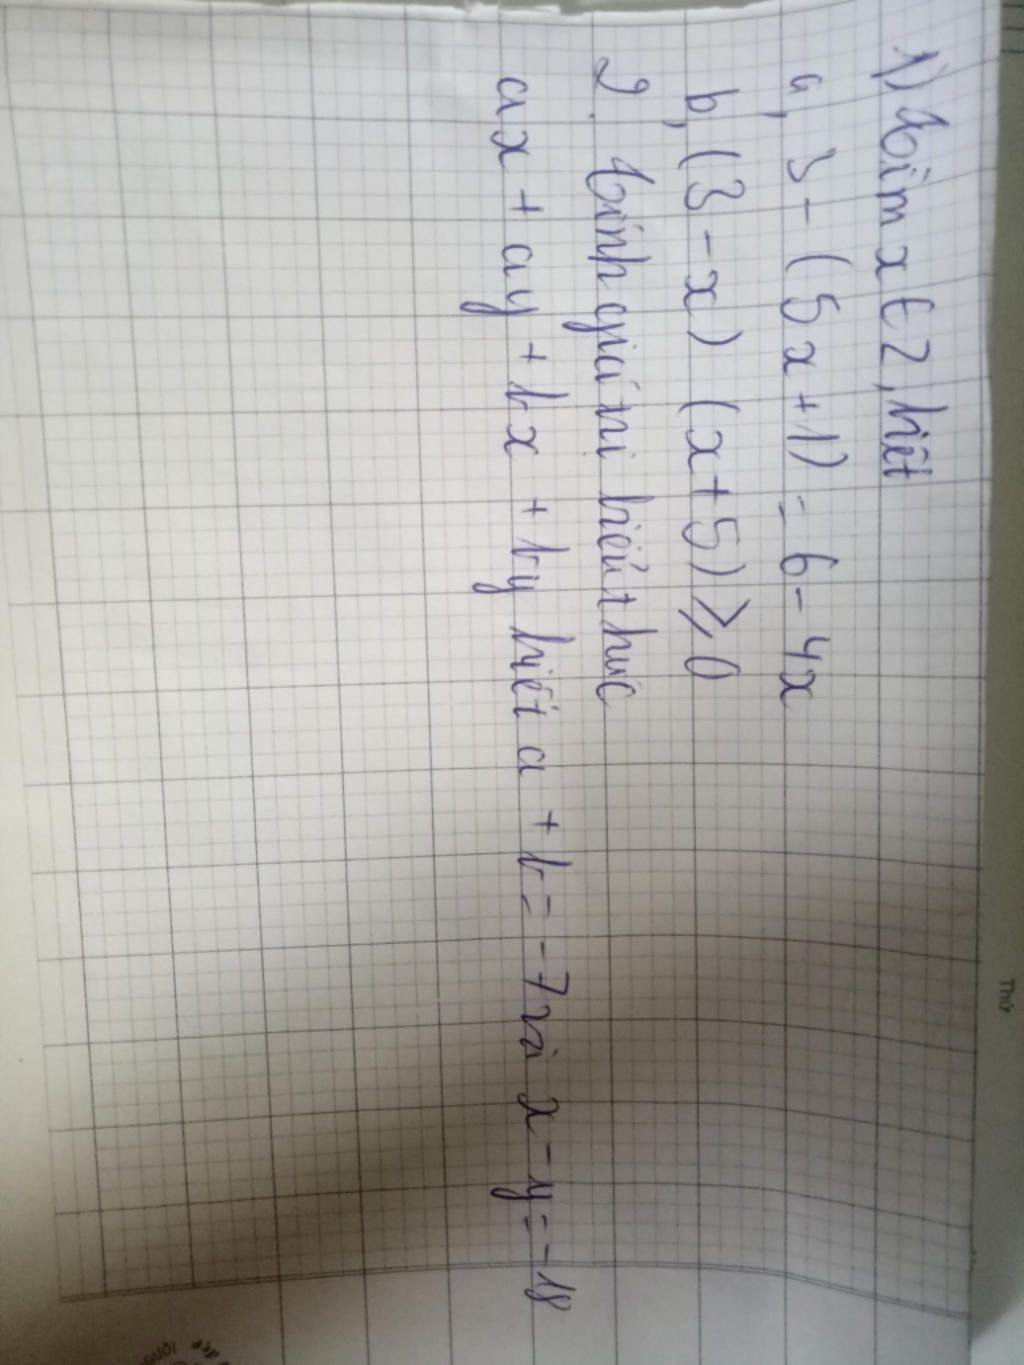 1) tìm x ∈ Z, biết
a, 3 - (5x + 1) = 6 - 4x
b, (3 - x) (x + 5) ≥ 0
2. tính giá trị biểu thức
ax + ay + bx + by biết a + b = -7 và x - y = -18
Thứ